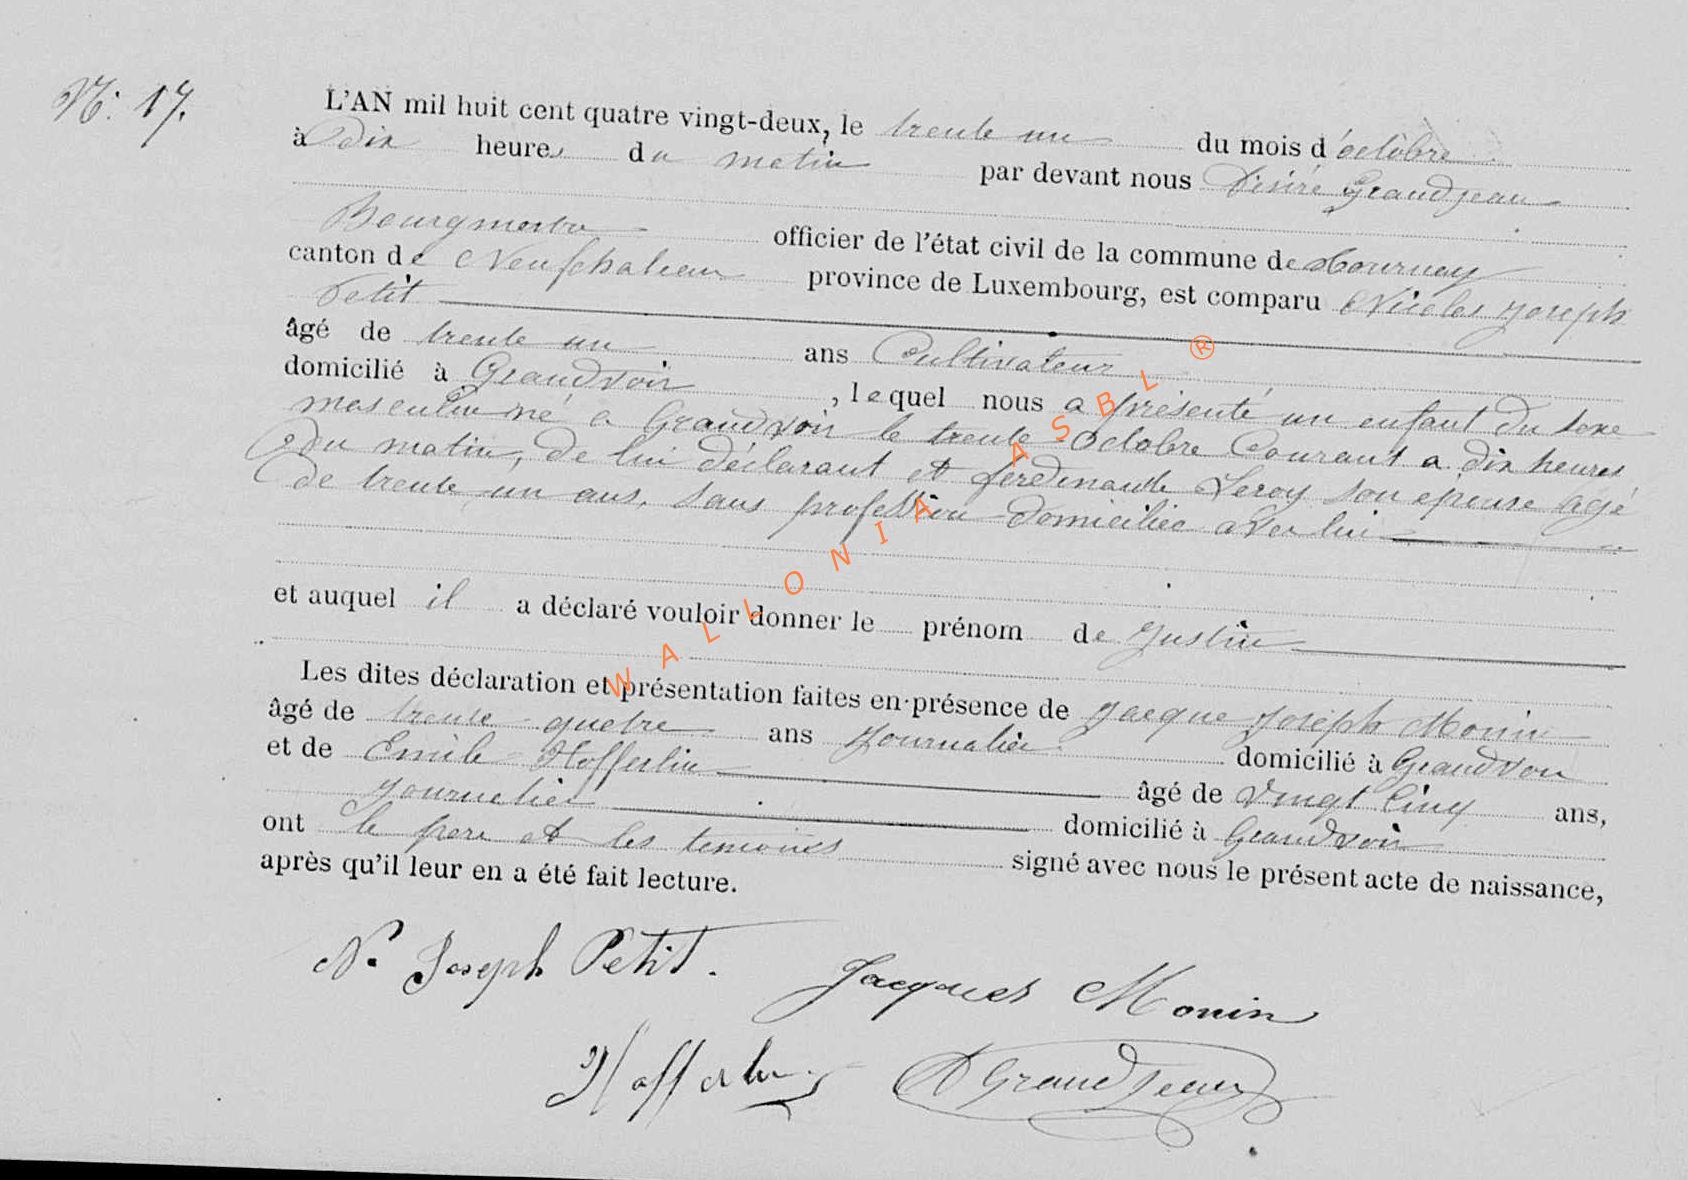 N°. 17.
L'AN mil huit cent quatre vingt-deux, le trente un du mois d'octobre
à Dix heures du matin par devant nous Désiré Grandjean
Bourgmestre officier de l'état civil de la commune de Tournay
canton de Neufchateau province de Luxembourg, est comparu Nicolas Joseph
Petit
âgé de trente un ans Cultivateur
domicilié à Grandvoir, lequel nous a présenté un enfant du sexe
masculin né à Grandvoir le trente Octobre Courant a dix heures
du matin, de lui déclarant et ferdinande Leroy son épouse agé
de trente un ans, sans profession domiciliée avec lui
et auquel il a déclaré vouloir donner le prénom de Justin
Les dites déclaration et présentation faites en présence de Jacque Joseph Monin
âgé de trente quatre ans Journalier domicilié à Grandvoir
et de Emile Hofferlin âgé de Vingt Cinq ans,
Journalier domicilié à Grandvoir
ont le père et les temoins signé avec nous le présent acte de naissance,
après qu'il leur en a été fait lecture.
N. Joseph Petit.
Jacques Monin
Hofferlin
D Grandjean
WALLONIA ASBL ®